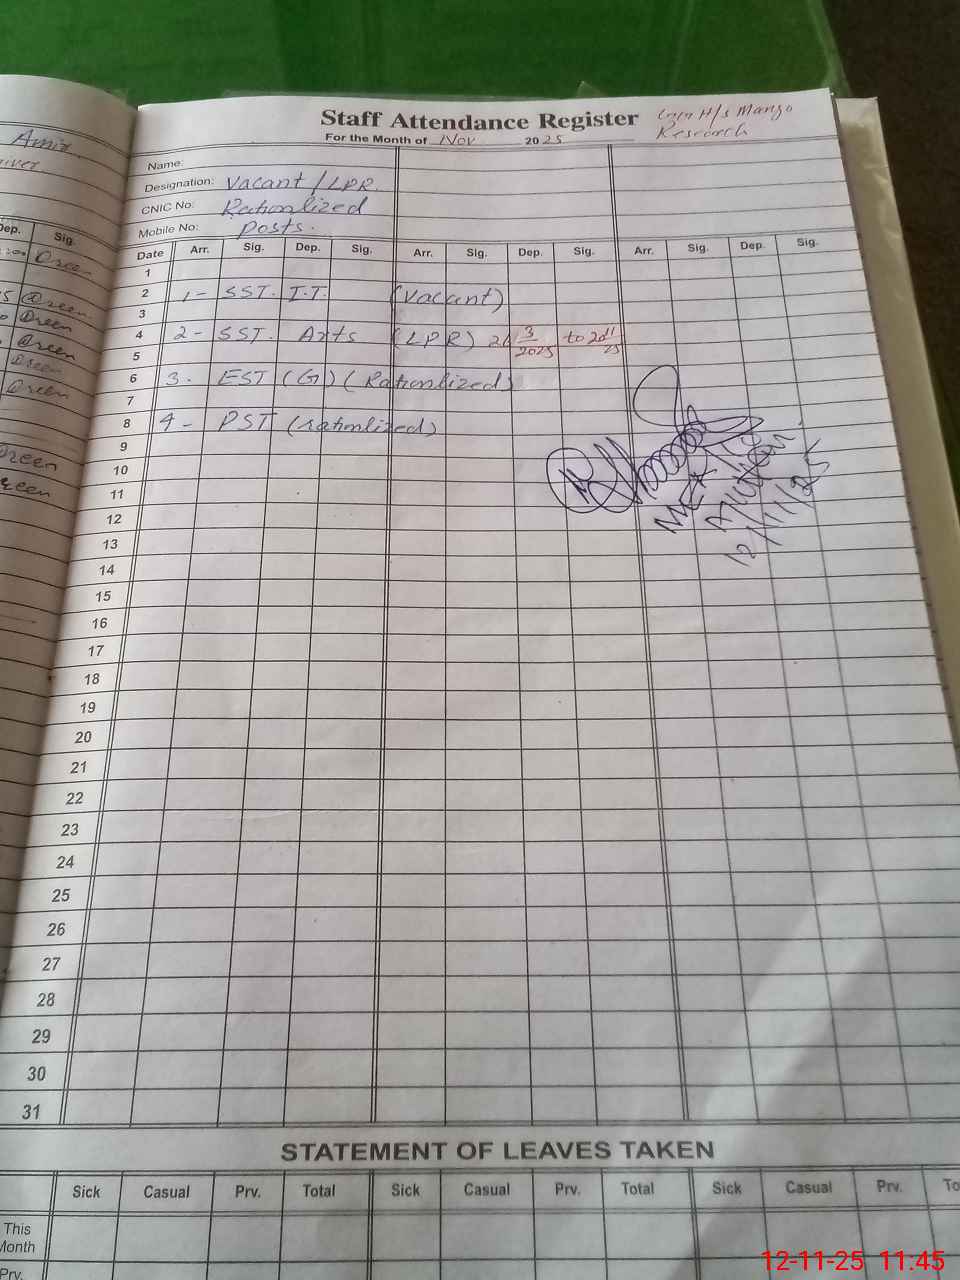 Staff Attendance Register
H/s Mango
Research
For the Month of Nov 2025
Name:
Designation: Vacant / LPR
CNIC No: Rationlized
Mobile No: Posts.
Date Arr. Sig. Dep. Sig. Arr. Sig. Dep. Sig. Arr. Sig. Dep. Sig.
1
2 1- SST. I.T. (Vacant)
3
4 2- SST. Arts (LPR)
5
6 3. EST (G) (Rationlized)
7
8 4- PST (rationlized)
9
10
11
12
13
14
15
16
17
18
19
20
21
22
23
24
25
26
27
28
29
30
31
12/11/25
STATEMENT OF LEAVES TAKEN
Sick Casual Prv. Total Sick Casual Prv. Total Sick Casual Prv. To
This
Month
Prv.
Amir
Dep. Sig.
12-11-25 11:45